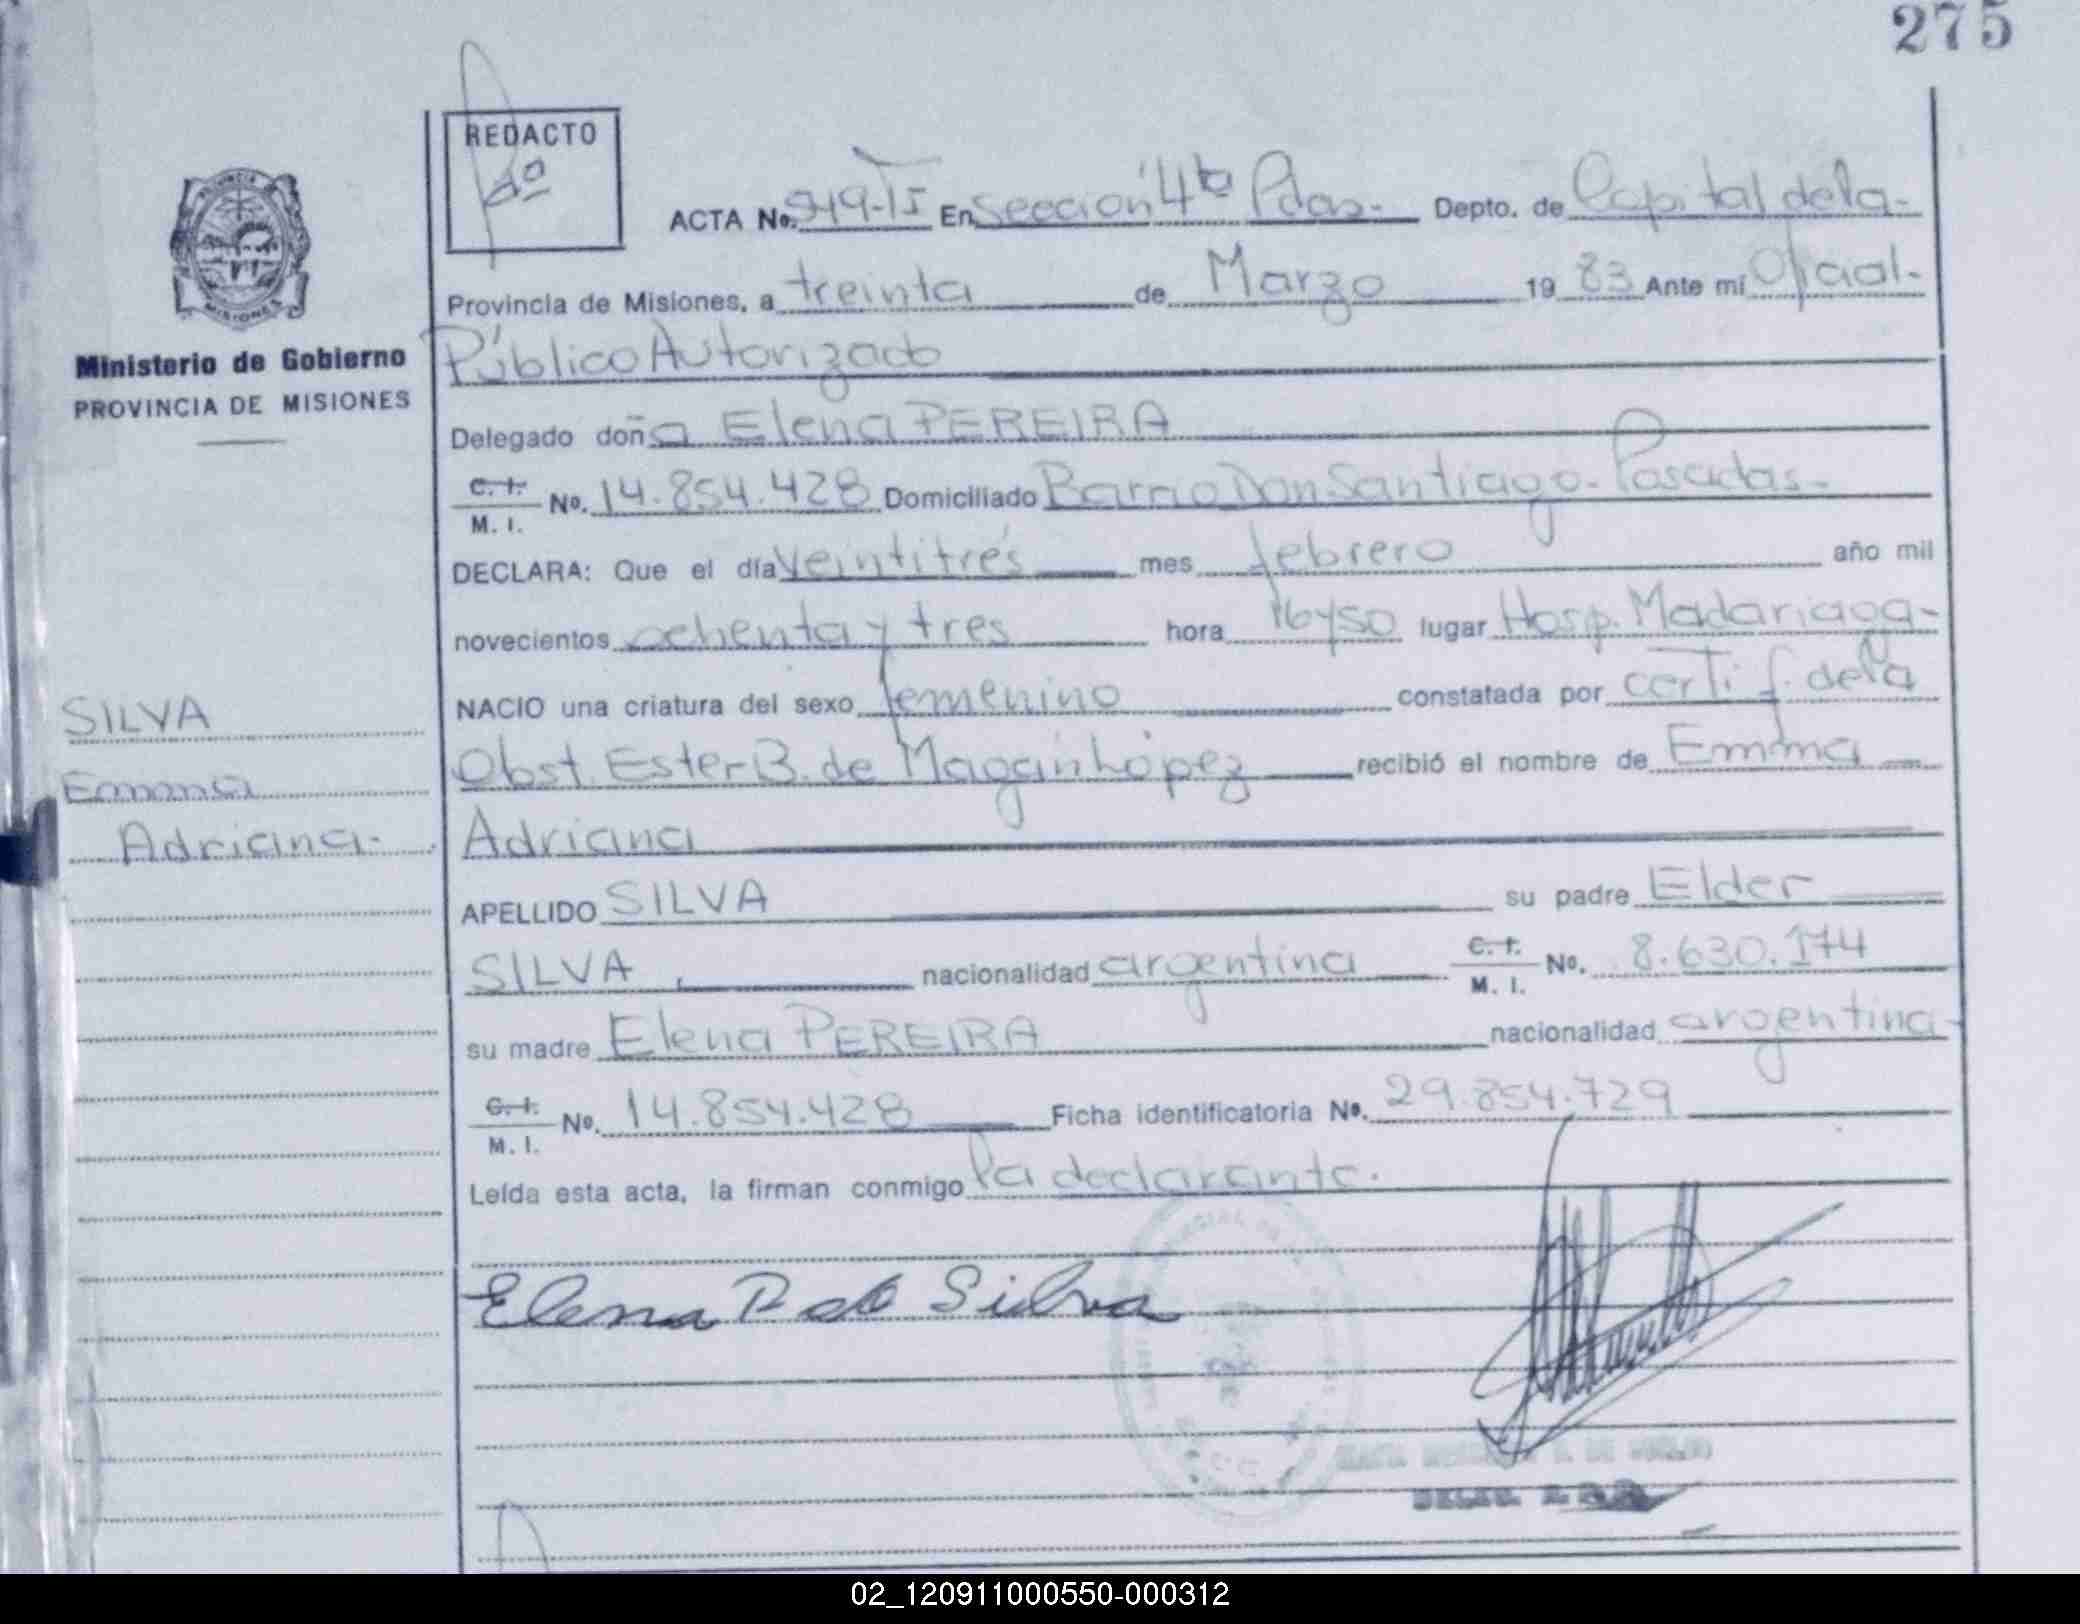 275
REDACTO
ACTA No. 949-TI En Sección 4ta Pdas.- Depto. de Capital de la.-
Provincia de Misiones, a treinta de Marzo 19 83 Ante mí Oficial.-
Público Autorizado
Ministerio de Gobierno
PROVINCIA DE MISIONES
Delegado doña Elena PEREIRA
C. I. M. I. No. 14.854.428 Domiciliado Barrio Don Santiago.- Posadas.-
DECLARA: Que el día veintitrés mes febrero año mil
novecientos ochenta y tres hora 16y50 lugar Hosp. Madariaga-
NACIO una criatura del sexo femenino constatada por certif. de la
Obst. Ester B. de recibió el nombre de Emma
Adriana
SILVA
Emma
Adriana.-
APELLIDO SILVA su padre Elder
SILVA, nacionalidad argentina C. I. M. I. No. 8.630.174
su madre Elena PEREIRA nacionalidad argentina-
C. I. M. I. No. 14.854.428 Ficha identificatoria No. 29.854.729
Leída esta acta, la firman conmigo la declarante.
Elena P de Silva
02_120911000550-000312